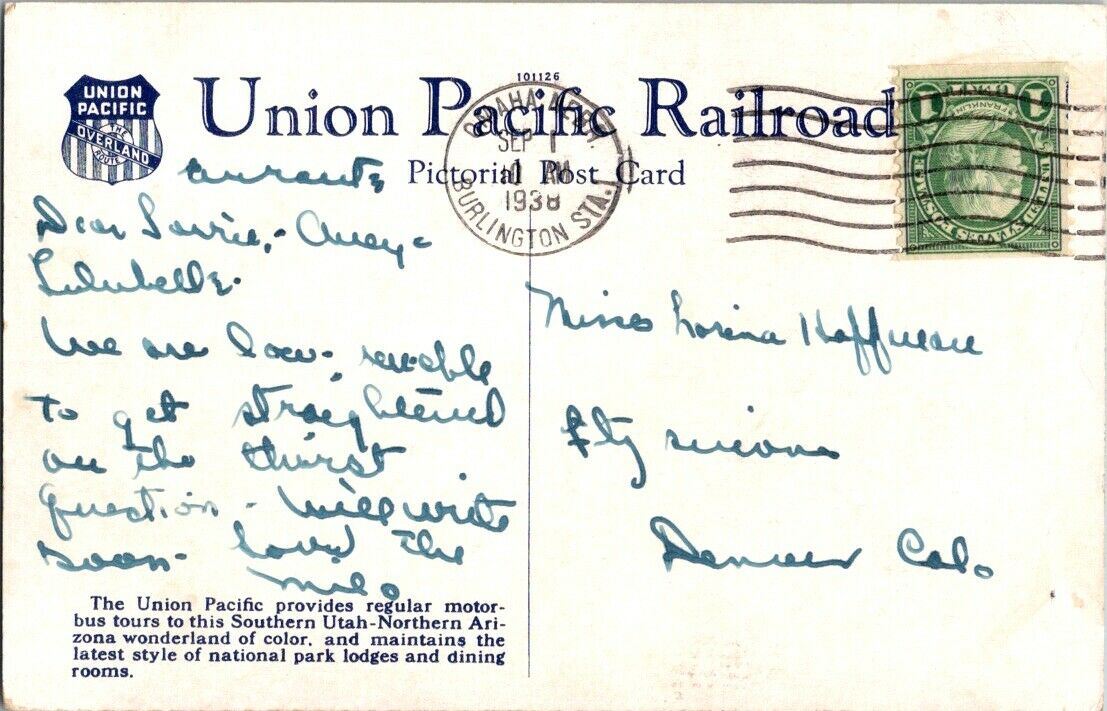 101126
UNION
PACIFIC
THE
OVERLAND
ROUTE
Union Pacific Railroad
Pictorial Post Card
OMAHA, NEBR.
SEP 1
AM
1938
BURLINGTON STA.
1 1
FRANKLIN
enroute
Dear Lorrie,-
Lulubelle.
We are
to get straightened
on the thirst
question - will write
soon - love the
Milo
Misses Lorina Hoffman
Ftz simons
Denver Colo
The Union Pacific provides regular motor-
bus tours to this Southern Utah-Northern Ari-
zona wonderland of color, and maintains the
latest style of national park lodges and dining
rooms.